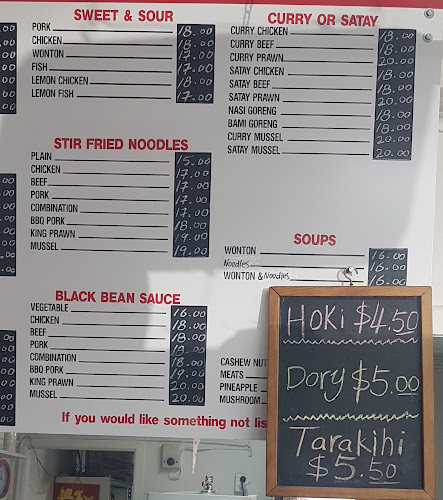 SWEET & SOUR
PORK 18.00
CHICKEN 18.00
WONTON 17.00
FISH 17.00
LEMON CHICKEN 18.00
LEMON FISH 17.00
STIR FRIED NOODLES
PLAIN 15.00
CHICKEN 17.00
BEEF 17.00
PORK 17.00
COMBINATION 17.00
BBQ PORK 18.00
KING PRAWN 19.00
MUSSEL 19.00
BLACK BEAN SAUCE
VEGETABLE 16.00
CHICKEN 18.00
BEEF 18.00
PORK
COMBINATION 18.00
BBQ PORK
KING PRAWN 20.00
MUSSEL 20.00
CURRY OR SATAY
CURRY CHICKEN 18
CURRY BEEF 18
CURRY PRAWN 20.00
SATAY CHICKEN 18
SATAY BEEF 18.00
SATAY PRAWN 20.00
NASI GORENG 18.00
BAMI GORENG 18.00
CURRY MUSSEL 20.00
SATAY MUSSEL 20.00
SOUPS
WONTON 16.00
Noodles 16.00
WONTON & Noodles 16.00
CASHEW NUT
MEATS
PINEAPPLE
MUSHROOM
If you would like something not lis
HOKI $4.50
DORY $5.00
Tarakihi
$5.50